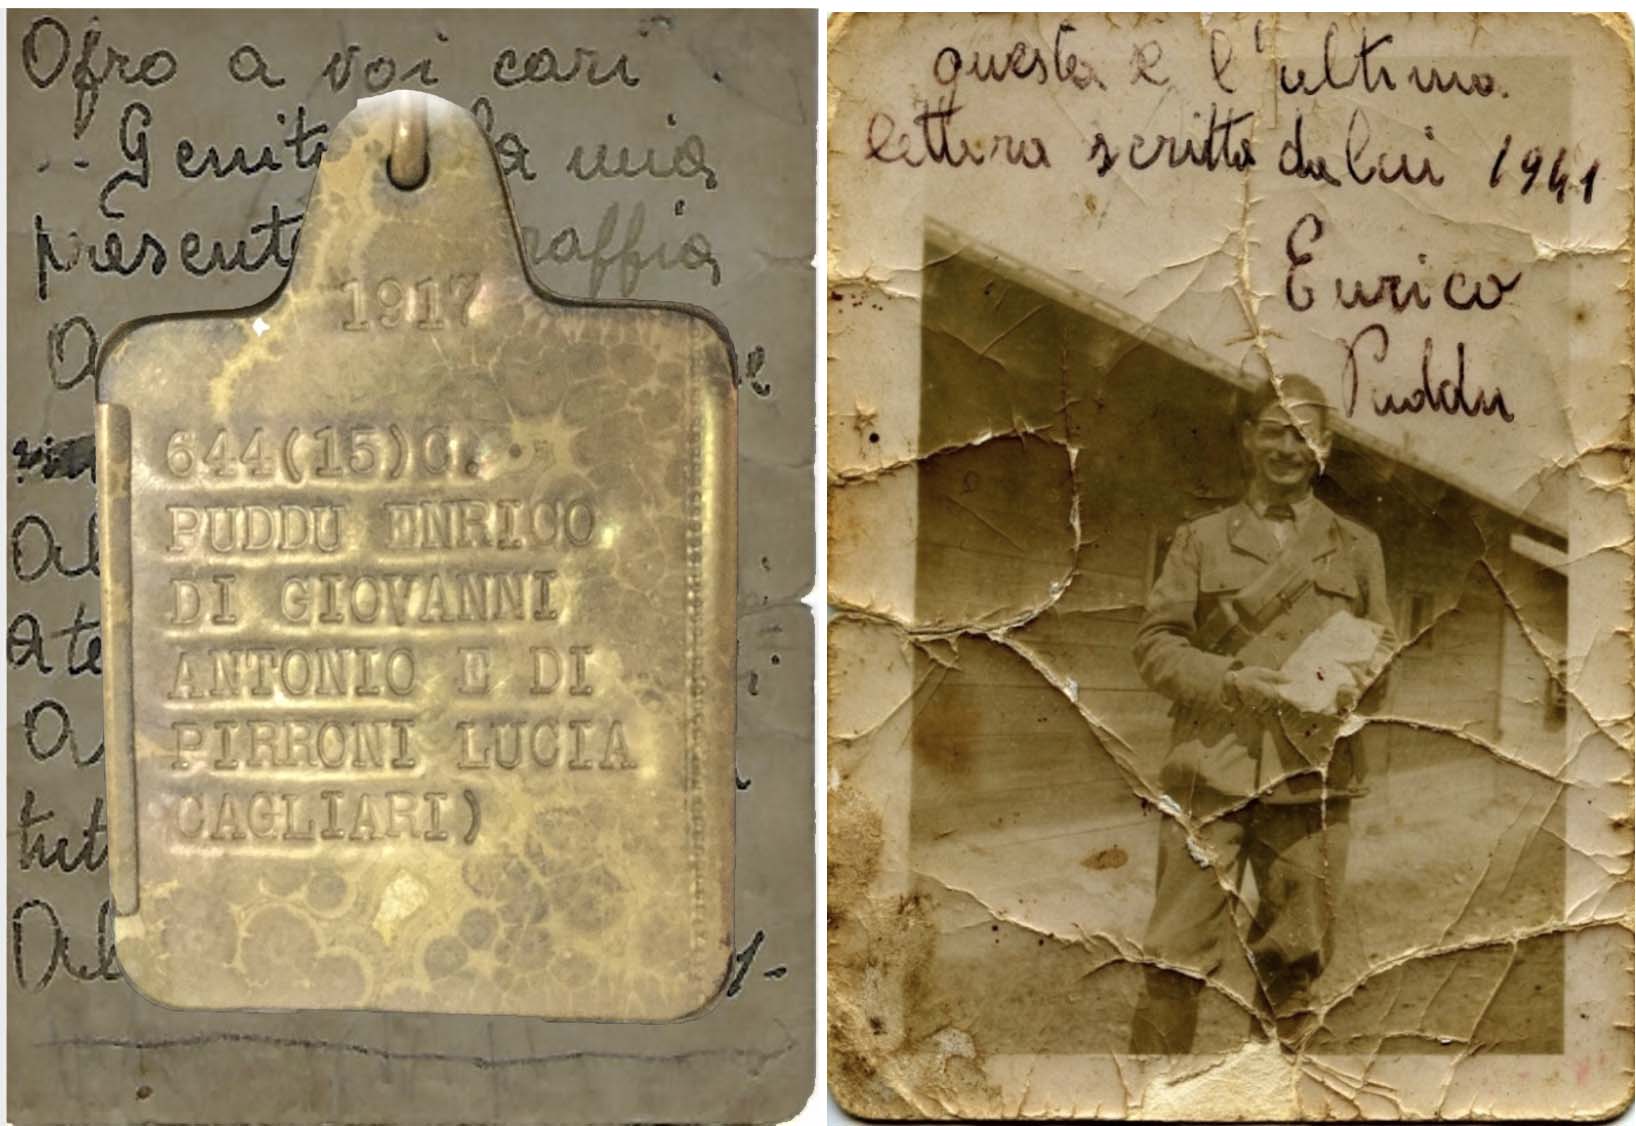 Ofro a voi cari
Genit la mia
present raffia
1917
644(15)C.
PUDDU ENRICO
DI GIOVANNI
ANTONIO E DI
PIRRONI LUCIA
CAGLIARI)
questa e l'ultima
lettera scritta da lui 1941
Enrico
Puddu